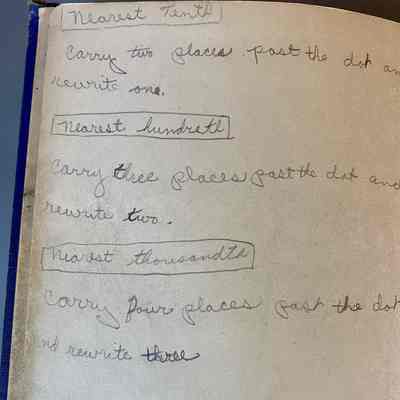 Nearest Tenth
Carry two places past the dot an
rewrite one.
Nearest hundreth
Carry three places past the dot and
rewrite two.
Nearest thousandth
Carry four places past the dot
nd rewrite three